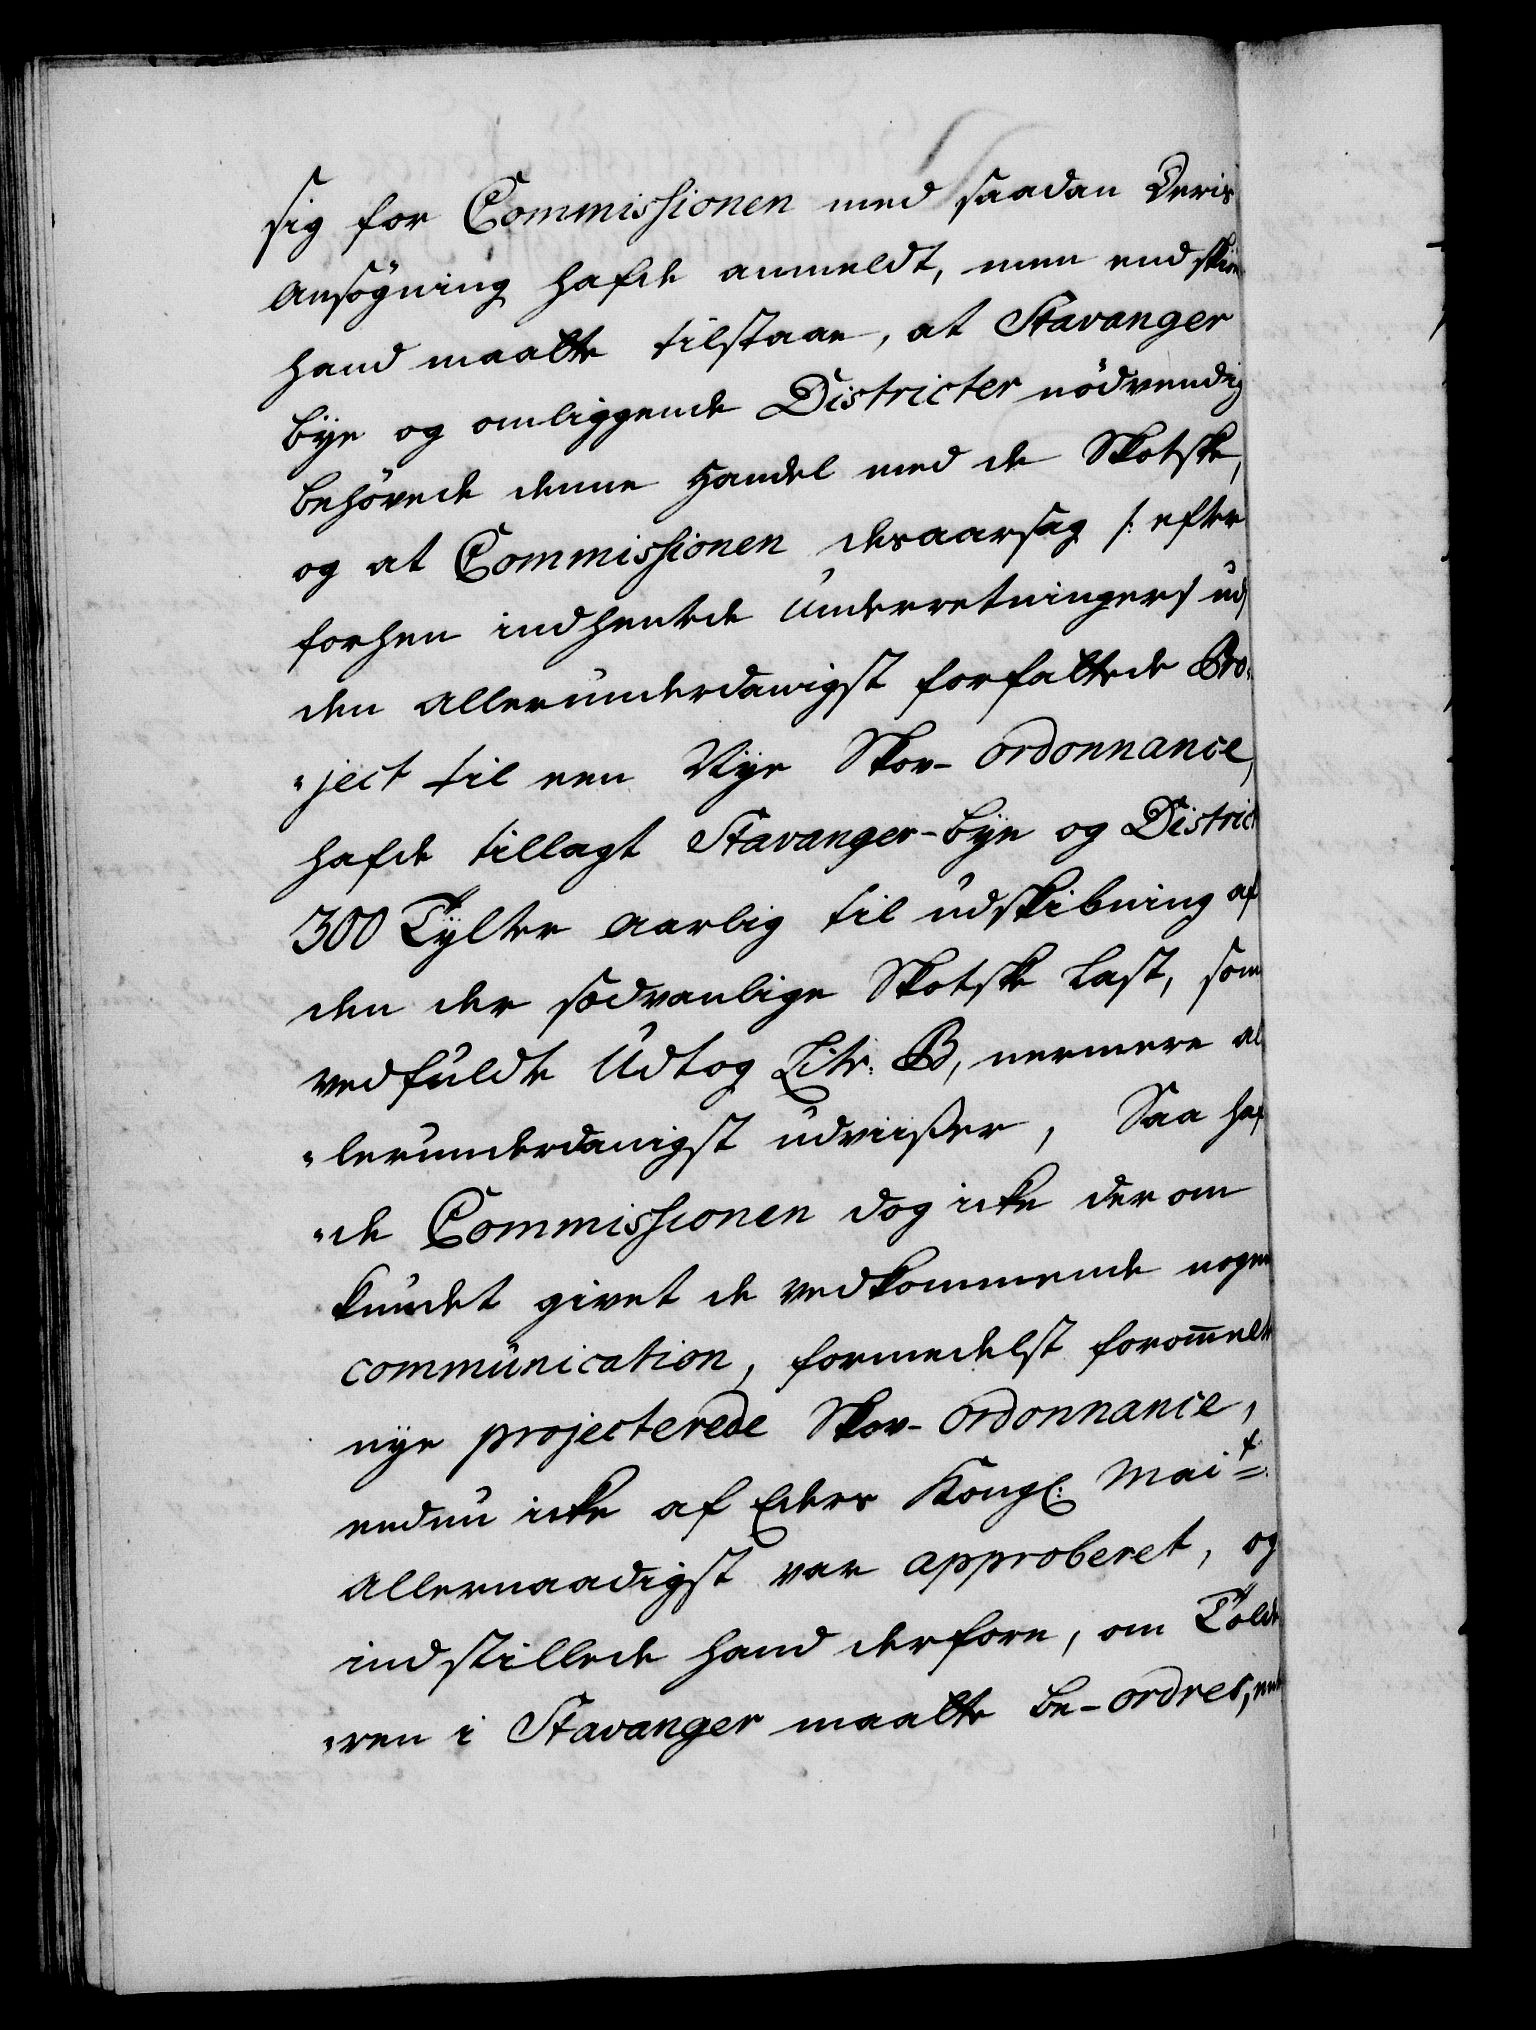 sig for Commissionen med saadan Deris
Ansögning hafde anmeldt, men endskiön
hand maatte tilstaae, at Stavanger
bÿe og omliggende Districter nödvendig
behövede denne Handel med de Skotske,
og at Commissionen desaarsag /: efter
forhen indhentede Underretninger :/ udj
den allerunderdanigst forfattede Pro-
"ject til een Nÿe Skov-ordonnance,
hafde tillagt Stavanger-bÿe og District
300 Tÿlter aarlig til udskibning af
den der sædvanlige Skotske Last, som
vedfuldte Udtog Litr: B, nermere al
"lerunderdanigst udviiser, Saa haf
"de Commissionen dog icke derom
kundet givet de vedkommende nogen
communication, formedelst foromelte
nÿe projecterede Skov-ordonnance,
endnu icke af Eders Kongl: Mait:
allernaadigst var approberet, og
indstillede hand derfore, om Tolde
"ren i Stavanger maatte be-ordres,